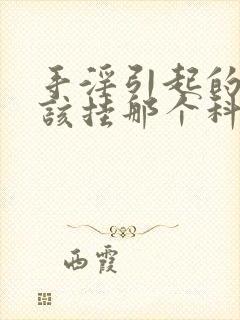 手淫引起的
該挂那个科
西霞